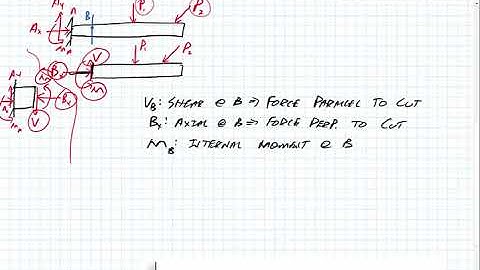 Ay A B P₁ P₂
Ax
MA
P₁ P₂
V
Bx
M
Ay
V
Bx
MA
V
VB: SHEAR @ B ⇒ FORCE PARALLEL TO CUT
Bx: AXIAL @ B ⇒ FORCE PERP. TO CUT
MB: INTERNAL MOMENT @ B